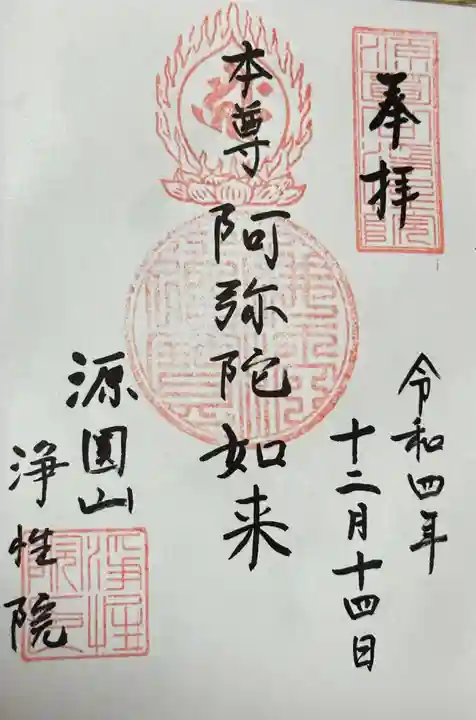 奉拝
令和四年
十二月十四日
本尊 阿弥陀如来
源圓山
浄性院